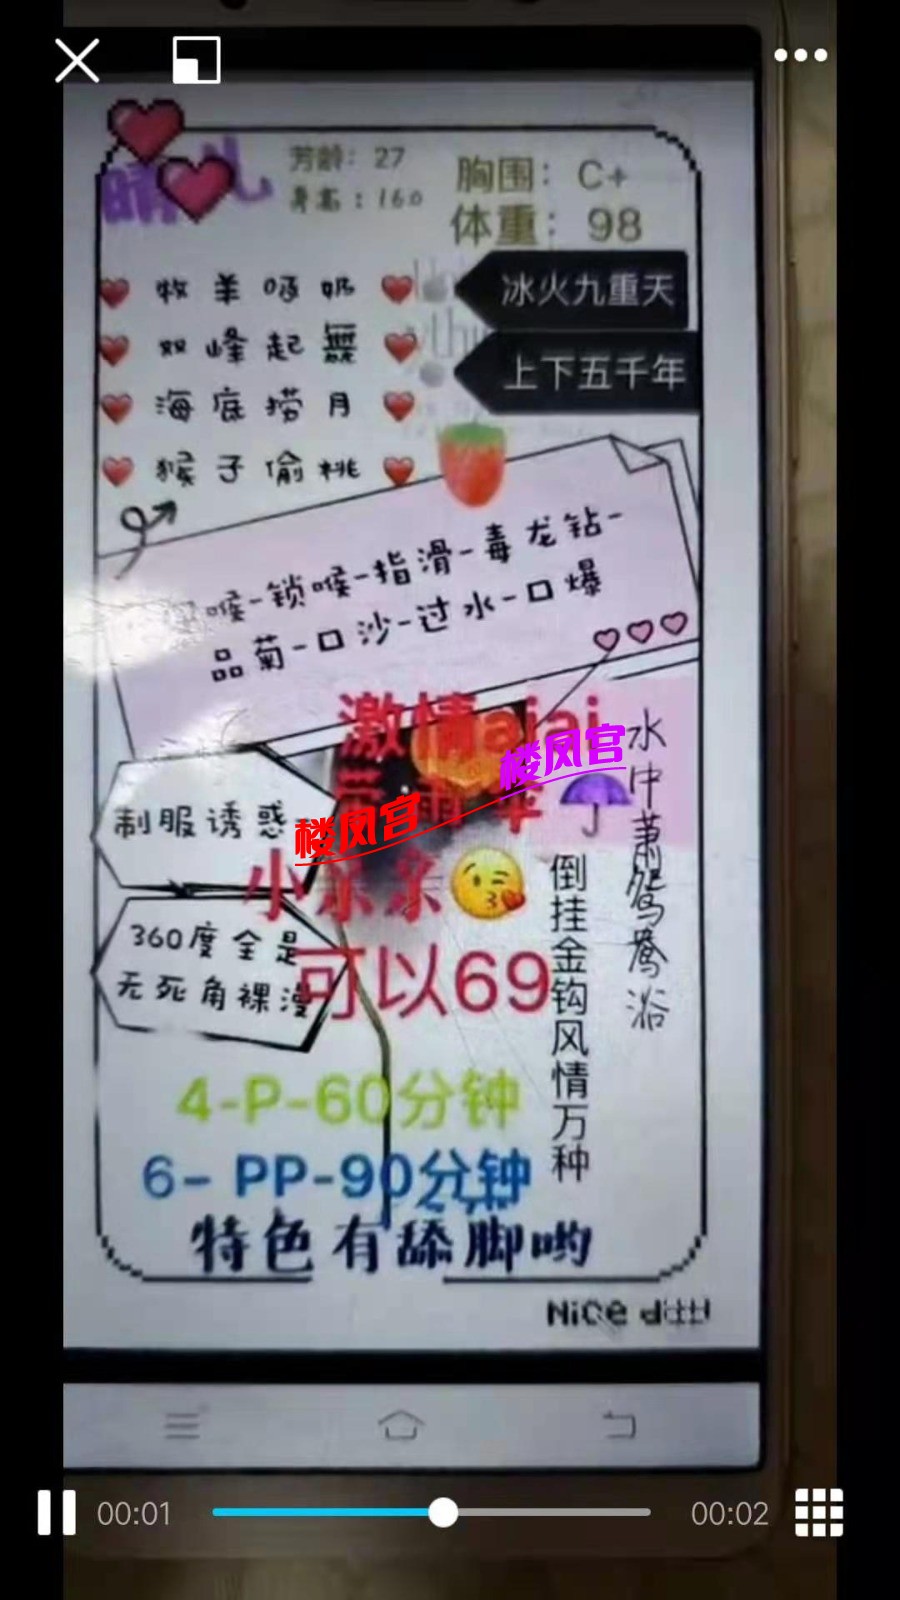 晴儿
芳龄：27
身高：160
胸围：C+
体重：98
牧羊哑奶
双峰起舞
海底捞月
猴子偷桃
冰火九重天
上下五千年
喉-锁喉-指滑-毒龙钻-
品菊-口沙-过水-口爆
激情aiai
楼凤宫
楼凤宫
制服诱惑
小亲亲
360度全是
无死角裸漫
可以69
水中萧鸳鸯浴
倒挂金钩风情万种
4-P-60分钟
6- PP-90分钟
特色有舔脚哟
Nice
00:01
00:02